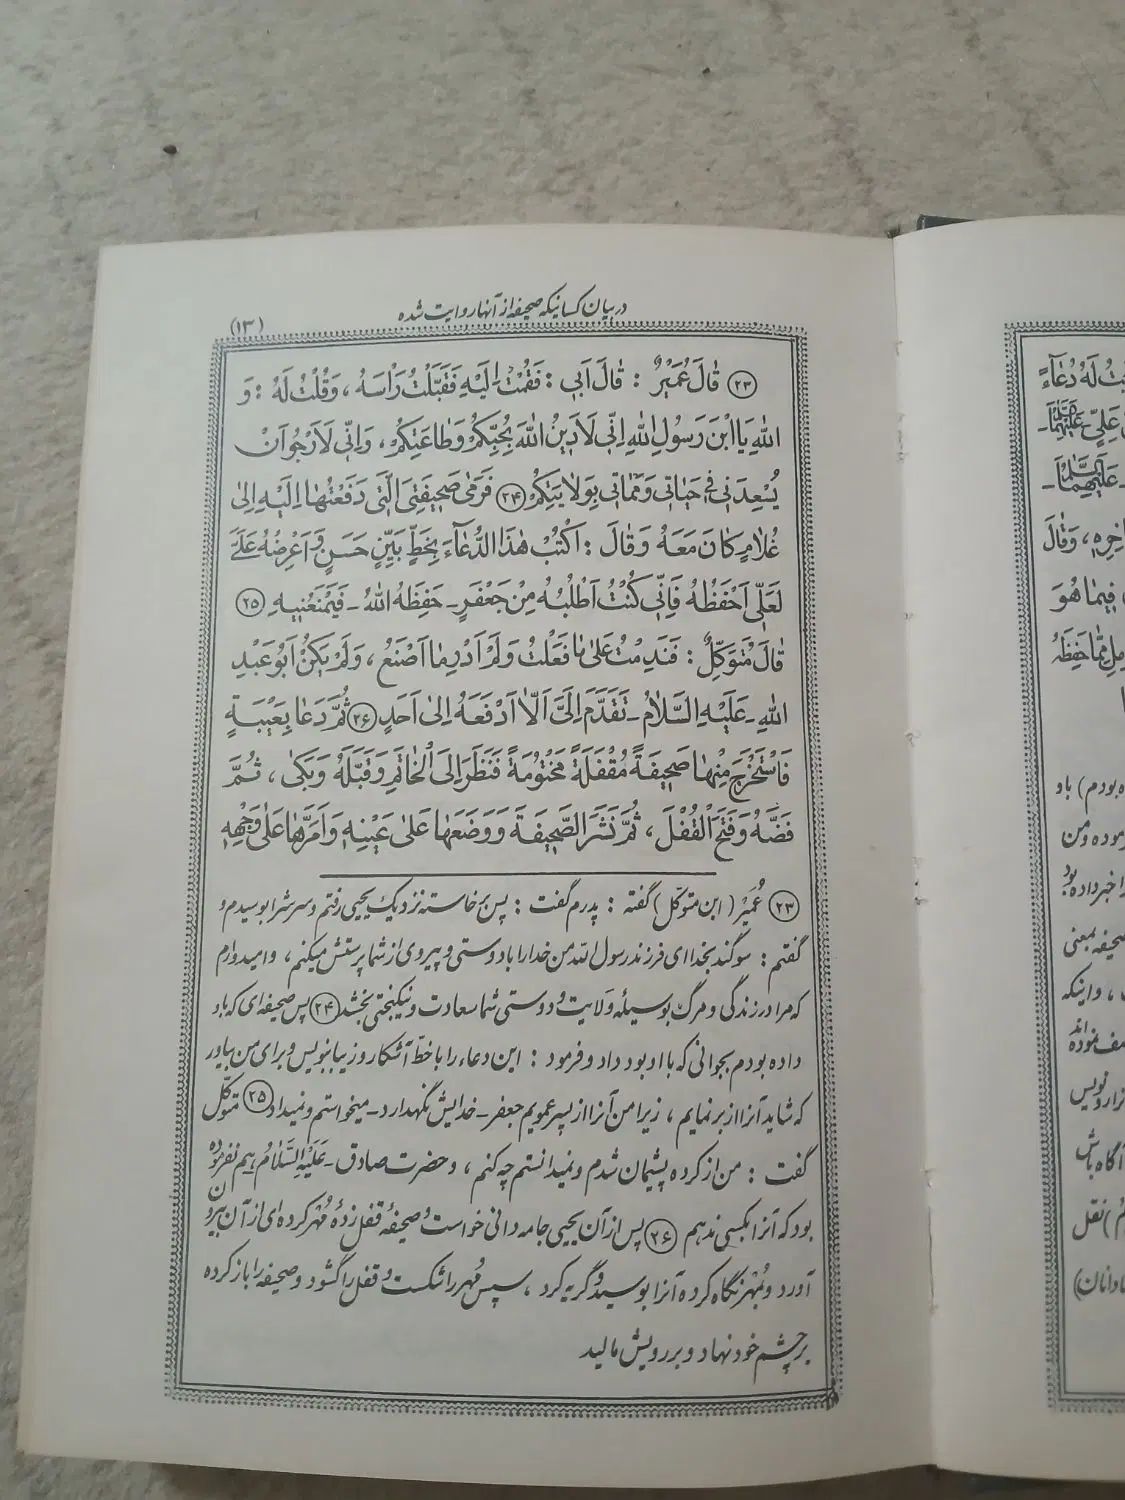 در بیان کسانیکه صحیفه از آنها روایت شده
(۱۳)
۲۳ قٰالَ عُمَیْرٌ : قٰالَ اَبی : فَقُمْتُ اِلَیْهِ فَقَبَّلْتُ رَأْسَهُ ، وَقُلْتُ لَهُ : وَ
اللهِ یَا ابْنَ رَسُولِ اللهِ اِنّی لَاَدینُ اللهَ بِحُبِّکُمْ وَطٰاعَتِکُمْ ، وَاِنّی لَاَرْجُو اَنْ
یُسْعِدَنی فی حَیٰاتی وَمَمٰاتی بِوِلایَتِکُمْ ۲۴ فَرَمیٰ صَحیفَتِیَ الَّتی دَفَعْتُهٰا اِلَیْهِ اِلیٰ
غُلٰامٍ کٰانَ مَعَهُ وَقٰالَ : اُکْتُبْ هٰذَا الدُّعٰآءَ بِخَطٍّ بَیِّنٍ حَسَنٍ وَ اَعْرِضْهُ عَلَیَّ
لَعَلّی اَحْفَظُهُ فَاِنّی کُنْتُ اَطْلُبُهُ مِنْ جَعْفَرٍ - حَفِظَهُ اللهُ - فَیَمْنَعُنیهِ ۲۵
قٰالَ مُتَوَکِّلٌ : فَنَدِمْتُ عَلیٰ مٰا فَعَلْتُ وَلَمْ اَدْرِ مٰا اَصْنَعُ ، وَلَمْ یَکُنْ اَبُو عَبْدِ
اللهِ - عَلَیْهِ السَّلٰامُ - تَقَدَّمَ اِلَیَّ اَلّٰا اَدْفَعَهُ اِلیٰ اَحَدٍ ۲۶ ثُمَّ دَعٰا بِعَیْبَةٍ
فَاسْتَخْرَجَ مِنْهٰا صَحیفَةً مُقْفَلَةً مَخْتُومَةً فَنَظَرَ اِلَی الْخٰاتَمِ وَقَبَّلَهُ وَبَکیٰ ، ثُمَّ
فَضَّهُ وَفَتَحَ الْقُفْلَ ، ثُمَّ نَشَرَ الصَّحیفَةَ وَوَضَعَهٰا عَلیٰ عَیْنِهِ وَاَمَرَّهٰا عَلیٰ وَجْهِهِ
۲۳ عُمَیْر (ابن متوکّل) گفته : پدرم گفت : پس برخاسته نزدیک یحیی رفتم و سرش را بوسیدم و
گفتم : سوگند بخدا ای فرزند رسول الله من خدا را با دوستی و پیروی از شما پرستش میکنم ، و امیدوارم
که مرا در زندگی و مرگ بوسیلهٔ ولایت و دوستی شما سعادت و نیکبختی بخشد ۲۴ پس صحیفه‌ای که باو
داده بودم بجوانی که با او بود داد و فرمود : این دعاء را با خطّ آشکار و زیبا بنویس و برای من بیاور
که شاید آنرا از بر نمایم ، زیرا من آنرا از پسر عمویم جعفر - خدایش نگهدارد - میخواستم و نمیداد ۲۵ متوکّل
گفت : من از کرده پشیمان شدم و نمیدانستم چه کنم ، و حضرت صادق - عَلَیْهِ السَّلامُ - بمن نفرموده
بود که آنرا بکسی ندهم ۲۶ پس از آن یحیی جامه دانی خواست و صحیفهٔ قفل زدهٔ مُهر کرده‌ای از آن بیرون
آورد و بمُهْر نگاه کرده آنرا بوسید و گریه کرد ، سپس مُهر را شکست و قفل را گشود و صحیفه را باز کرده
بر چشم خود نهاد و بر رویش مالید